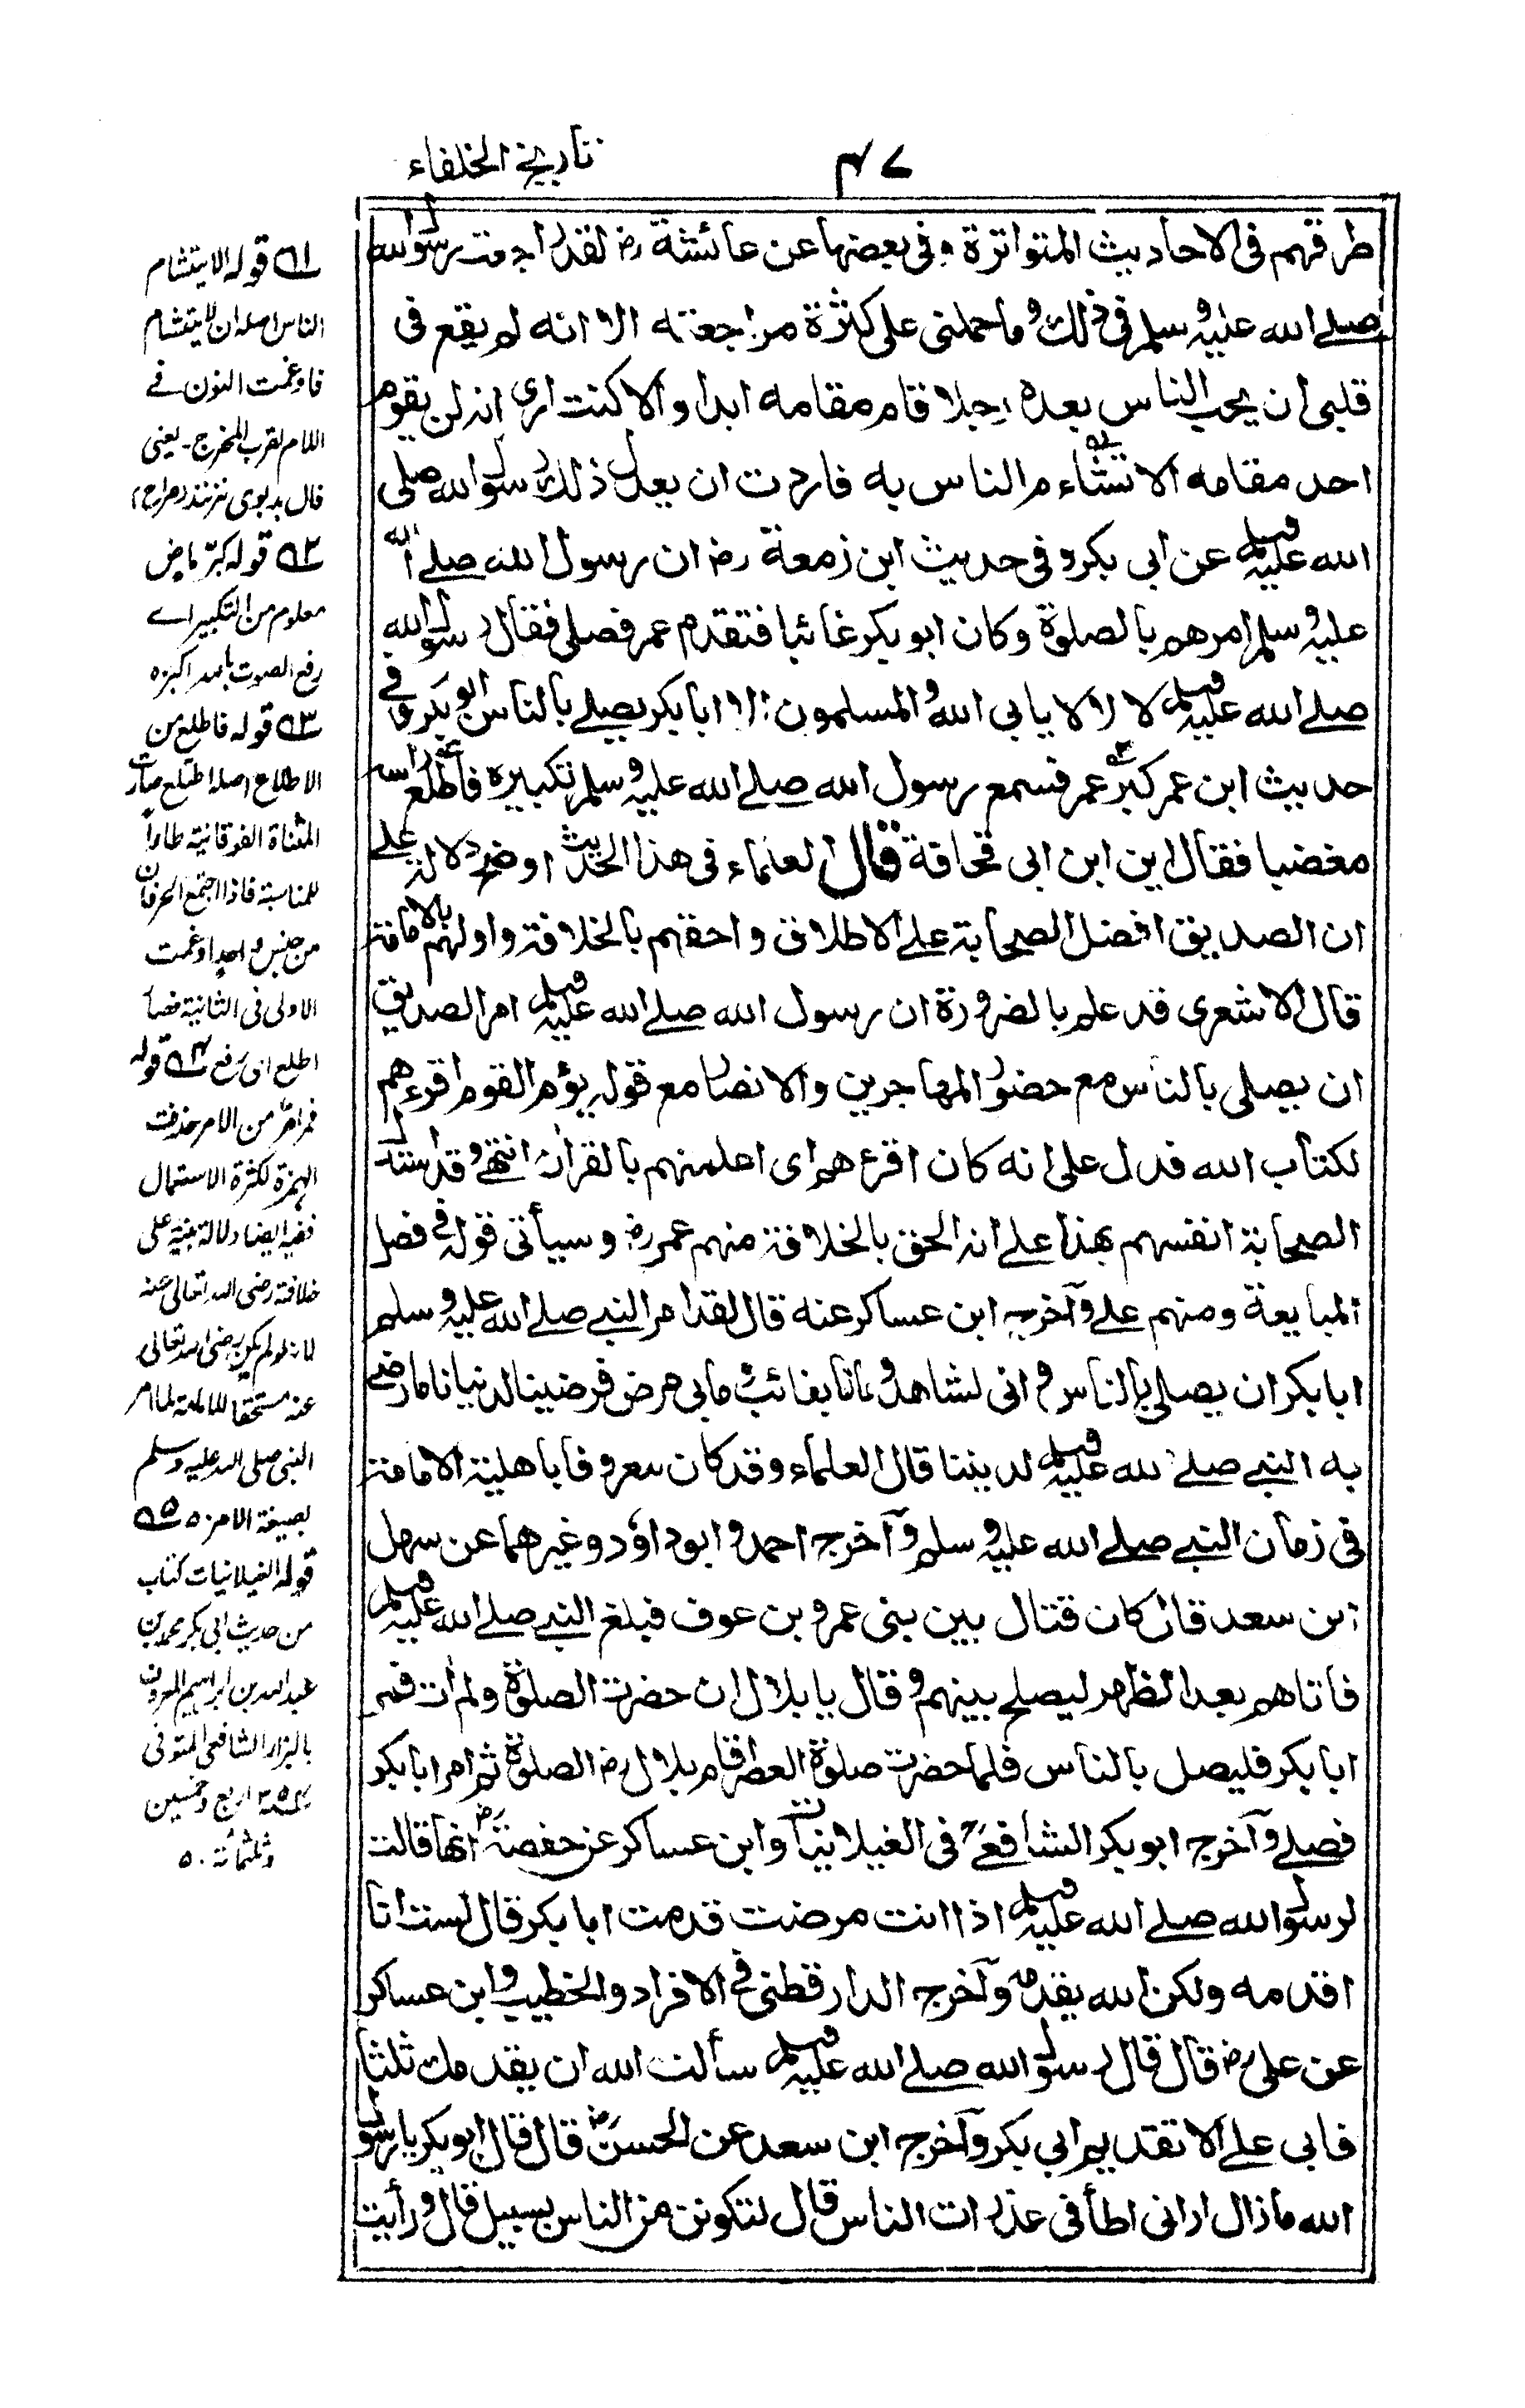 تاريخ الخلفاء
۴۷
طرقهم فى الاحاديث المتواترة وفى بعضها عن عائشة رض لقد راجعت رسول الله
صلے الله عليه وسلم فى ذلك وما حملنى على كثرة مراجعته الا انه لم يقع فى
قلبى ان يحب الناس بعده رجلا قام مقامه ابدا والا كنت ارى انه لن يقوم
احد مقامه الا تشاءم الناس به فاردت ان يعدل ذلك رسول الله صلى
الله عليه وسلم عن ابى بكر وفى حديث ابن زمعة رض ان رسول الله صلے الله
عليه وسلم امرهم بالصلوة وكان ابو بكر غائبا فتقدم عمر فصلى فقال رسول الله
صلے الله عليه وسلم لا لا لا يابى الله والمسلمون الا ابا بكر يصلے بالناس ابو بكر وفى
حديث ابن عمر كبر عمر فسمع رسول الله صلے الله عليه وسلم تكبيره فاطلع راسه
مغضبا فقال اين ابن ابى قحافة قال العلماء فى هذا الحديث اوضح دلالة على
ان الصديق افضل الصحابة على الاطلاق واحقهم بالخلافة واولهم بالامامة
قال الاشعرى قد علم بالضرورة ان رسول الله صلے الله عليه وسلم امر الصديق
ان يصلى بالناس مع حضور المهاجرين والانصار مع قوله يؤم القوم اقرءهم
لكتاب الله فدل على انه كان اقرءهم اى اعلمهم بالقران انتهى وقد استدل
الصحابة انفسهم بهذا على انه الحق بالخلافة منهم عمر رض وسيأتى قوله فى فصل
المبايعة ومنهم على وآخرج ابن عساكر عنه قال لقد امر النبى صلے الله عليه وسلم
ابا بكر ان يصلى بالناس وانى لشاهد وما انا بغائب وما بى مرض فرضينا لدنيانا ما رضى
به النبى صلے الله عليه وسلم لديننا قال العلماء وقد كان معروفا باهلية الامامة
فى زمان النبى صلے الله عليه وسلم وآخرج احمد وابو داؤد وغيرهما عن سهل
ابن سعد قال كان قتال بين بنى عمرو بن عوف فبلغ النبى صلے الله عليه وسلم
فاتاهم بعد الظهر ليصلح بينهم وقال يا بلال ان حضرت الصلوة ولم ات فمر
ابا بكر فليصل بالناس فلما حضرت صلوة العصر اقام بلال رض الصلوة ثم امر ابا بكر
فصلى وآخرج ابو بكر الشافعى فى الغيلانيات وابن عساكر عن حفصة رض انها قالت
لرسول الله صلے الله عليه وسلم اذا انت مرضت قدمت ابا بكر قال لست انا
اقدمه ولكن الله يقدمه وآخرج الدارقطنى فى الافراد والخطيب وابن عساكر
عن على رض قال قال رسول الله صلے الله عليه وسلم سألت الله ان يقدمك ثلثا
فابى على الا تقديم ابى بكر وآخرج ابن سعد عن الحسن رض قال قال ابو بكر يا رسول
الله ما ازال ارانى اطأ فى عذرات الناس قال لتكونن من الناس بسبيل قال ورأيت
۱ قوله الا يتشام
الناس اصله ان لا يتشام
فادغمت النون فى
اللام لقرب المخرج ۔ يعنى
فال بد بوى نزنند (صراح)
۲ قوله كبر ماض
معلوم من التكبير اے
رفع الصوت بالله اكبر ٥
۳ قوله فاطلع من
الاطلاع اصله اطتلع صارت
المثناة الفوقانية طاءً
للمناسبة فاذا اجتمع الحرفان
من جنس واحد ادغمت
الاولى فى الثانية فصار
اطلع اى رفع ۴ قوله
فمر امر من الامر حذفت
الهمزة لكثرة الاستعمال
ففيه ايضا دلالة بينة على
خلافته رضى الله تعالى عنه
لانه لو لم يكن رضى الله تعالى
عنه مستحقا للامامة لما امر
النبى صلى الله عليه وسلم
بصيغة الامر ٥ ۵
قوله الغيلانيات كتاب
من حديث ابى بكر محمد بن
عبد الله بن ابراهيم المعروف
بالبزار الشافعى المتوفى
۳۵۴ اربع وخمسين
وثلثمائة ٥